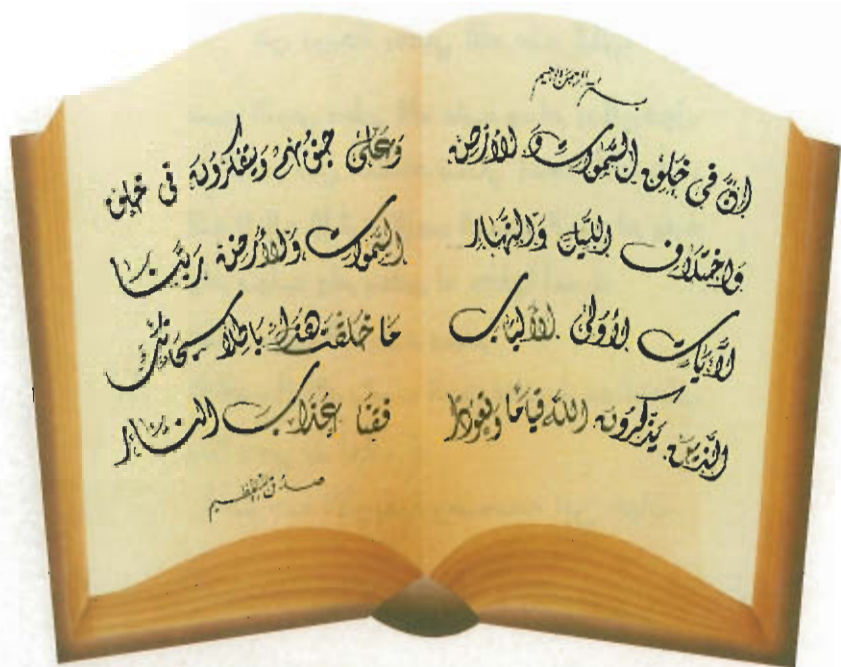 بسم الله الرحمن الرحيم
ان في خلق السموات والأرض
واختلاف الليل والنهار
لآيات لأولي الألباب
الذين يذكرون الله قياما وقعودا
وعلى جنوبهم ويتفكرون في خلق
السموات والأرض ربنا
ما خلقت هذا باطلا سبحانك
فقنا عذاب النار
صدق الله العظيم